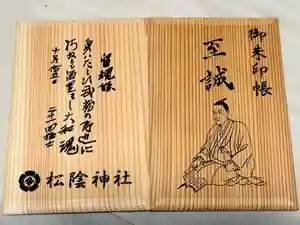 御朱印帳
至誠
留魂録
身ハたとひ武蔵の野辺に
朽ぬとも留置まし大和魂
十月念五日
二十一回猛士
松陰神社